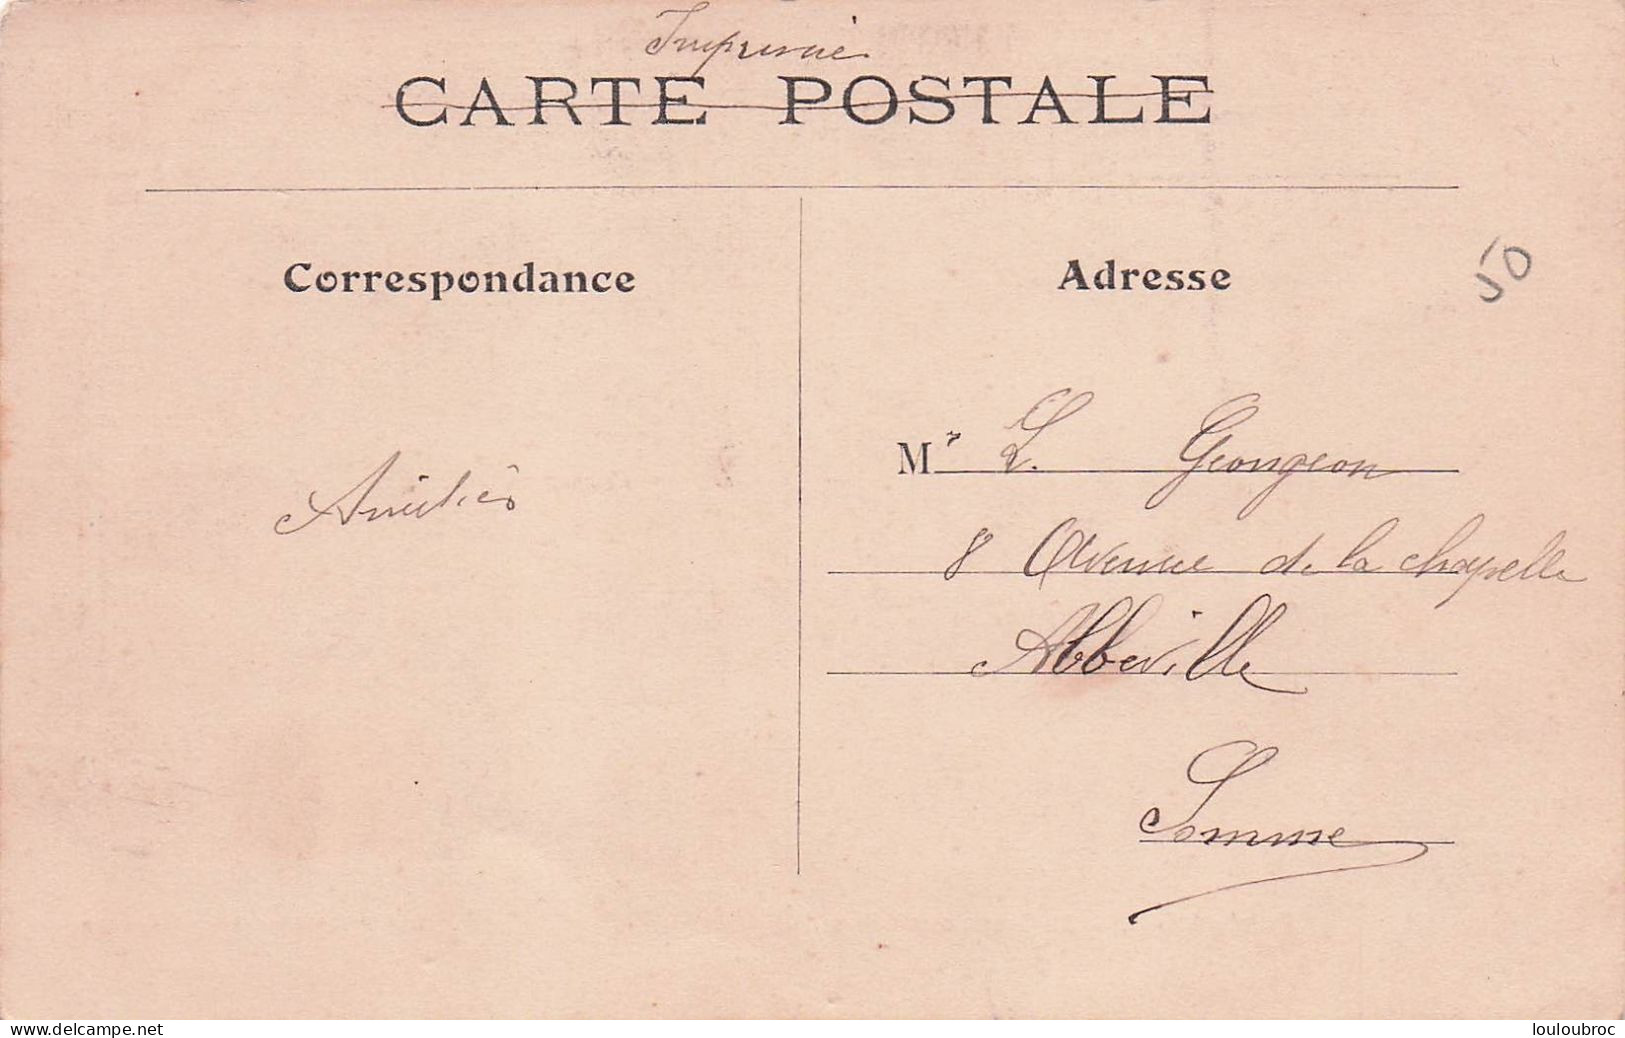 Imprimé
CARTE POSTALE
Correspondance
Adresse
50
Amitiés
Mr L. Georgeon
8 Avenue de la chapelle
Abbeville
Somme
www.delcampe.net
louloubroc